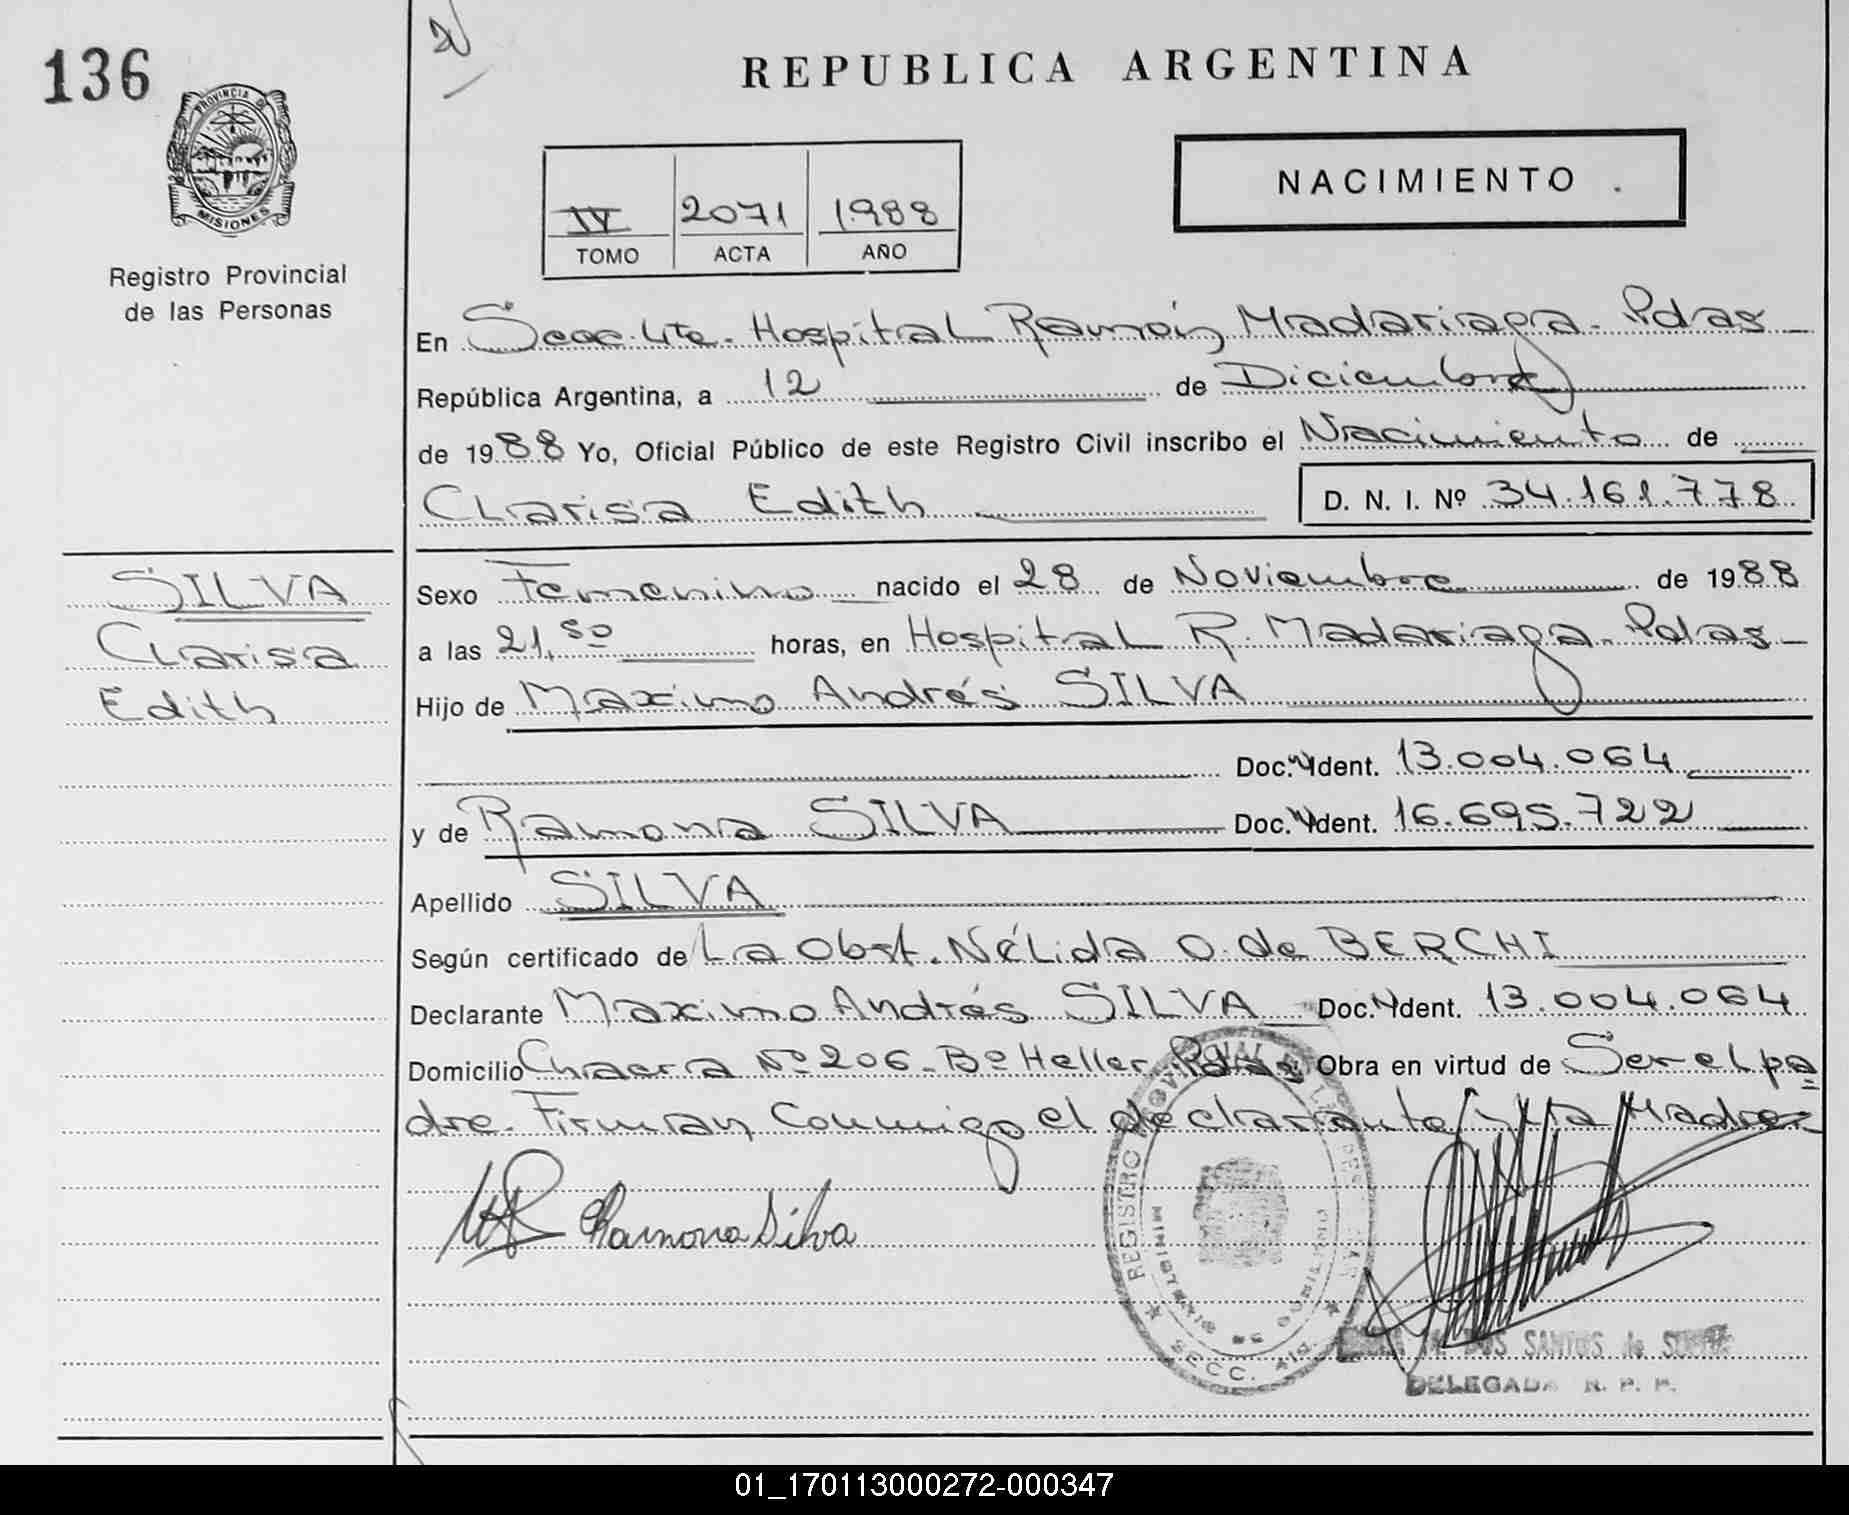 136
REPUBLICA ARGENTINA
PROVINCIA DE
MISIONES
Registro Provincial
de las Personas
NACIMIENTO
IV 2071 1988
TOMO ACTA AÑO
En Secc. 4ta. Hospital Ramón Madariaga. Pdas
República Argentina, a 12 de Diciembre
de 1988 Yo, Oficial Público de este Registro Civil inscribo el Nacimiento de
Clarisa Edith D. N. I. Nº 34.161.778
SILVA
Clarisa
Edith
Sexo Femenino nacido el 28 de Noviembre de 1988
a las 21,50 horas, en Hospital R. Madariaga. Pdas
Hijo de Maximo Andrés SILVA
Doc. Ident. 13.004.064
y de Ramona SILVA Doc. Ident. 16.695.722
Apellido SILVA
Según certificado de La Obst. Nélida O. de BERCHI
Declarante Maximo Andrés SILVA Doc. Ident. 13.004.064
Domicilio Chacra Nº 206. Bº Heller. Pdas Obra en virtud de Ser el pa
dre. Firman conmigo el declarante y la Madre
Ramona Silva
REGISTRO PROVINCIAL DE LAS PERSONAS
MINISTERIO DE GOBIERNO
SECC. 4ta
DOS SANTOS de
DELEGADA R. P. P.
01_170113000272-000347